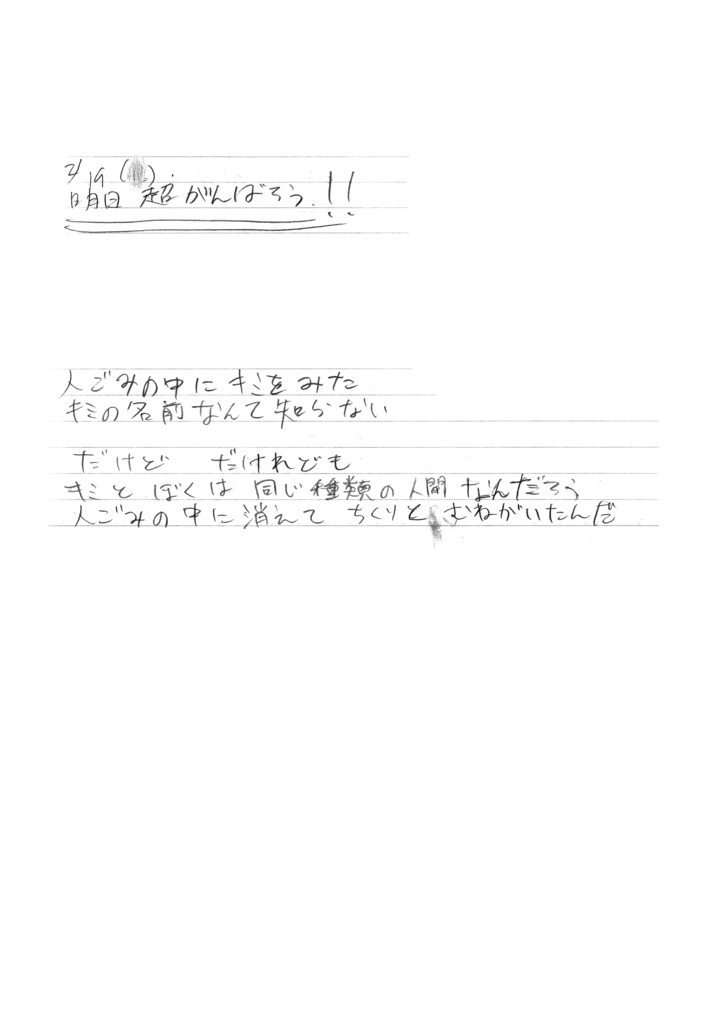 2/19( ).
明日 超がんばろう.!!
人ごみの中に キミをみた
キミの名前なんて知らない
だけど だけれども
キミと ぼくは 同じ種類の人間 なんだろう
人ごみの中に消えて ちくりと むねがいたんだ